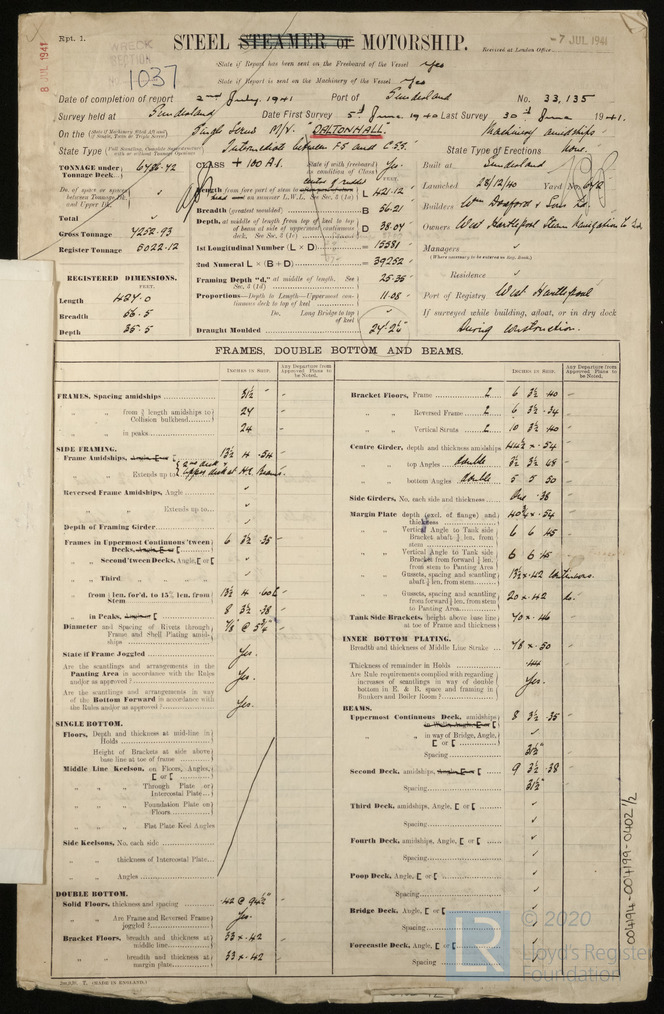 Rpt. 1.
8 JUL 1941
WRECK
SECTION
1037
STEEL STEAMER OR MOTORSHIP.
-7 JUL 1941
Received at London Office
State if Report has been sent on the Freeboard of the Vessel Yes
State if Report is sent on the Machinery of the Vessel Yes
Date of completion of report 2nd July, 1941 Port of Sunderland No. 33,135
Survey held at Sunderland Date First Survey 5th June 1940 Last Survey 30th June 1941.
On the (State if Machinery fitted Aft and if Single, Twin or Triple Screw) Single Screw M/V. "DALTONHALL" Machinery amidships
State Type Intermediate between FS and CSS. State Type of Erections None.
TONNAGE under Tonnage Deck 6486.42
CLASS +100 A1. State if with freeboard as condition of Class Yes.
Built at Sunderland
Launched 28/12/40 Yard No. 642
Length from fore part of stem to centre of rudder head on summer L.W.L. See Sec. 3 (1a) L 421.12
Breadth (greatest moulded) B 56.21
Builders Wm Doxford & Sons Ld.
Depth, at middle of length from top of keel to top of beam at side of uppermost continuous deck. See Sec. 3 (1c) D 38.04
Owners West Hartlepool Steam Navigation Co Ld.
Total
Gross Tonnage 7252.93
Register Tonnage 5022.12
1st Longitudinal Number (L × D) = 15581
2nd Numeral L × (B + D) = 39252
Managers
(Where necessary to be entered in Reg. Book.)
Framing Depth "d," at middle of length. See Sec. 3 (1d) 25.35
Residence
REGISTERED DIMENSIONS.
FEET.
Length 424.0
Breadth 56.5
Depth 35.5
Proportions—Depth to Length—Uppermost continuous deck to top of keel 11.08
Do. Long Bridge to top of keel
Draught Moulded 24'-2½"
Port of Registry West Hartlepool
If surveyed while building, afloat, or in dry dock
During construction.
FRAMES, DOUBLE BOTTOM AND BEAMS.
INCHES IN SHIP.
Any Departure from Approved Plans to be Noted.
FRAMES, Spacing amidships 31½
from ⅗ length amidships to Collision bulkhead 27
in peaks 24
SIDE FRAMING.
Frame Amidships, Angle, [ or [ 13½ 4 .54
Extends up to { 2nd deck Upper deck at H2 Beams.
Reversed Frame Amidships, Angle
Extends up to
Depth of Framing Girder
Frames in Uppermost Continuous 'tween Decks, Angle, [ or [ 6 3½ .35
Second 'tween Decks, Angle, [ or [
Third
from ⅕ len. for'd. to 15% len. from Stem 13½ 4 .60
in Peaks, Angle or [ 8 3½ .38
Diameter and Spacing of Rivets through Frame and Shell Plating amidships ⅞ @ 5¾"
State if Frame Joggled Yes.
Are the scantlings and arrangements in the Panting Area in accordance with the Rules and/or as approved? Yes.
Are the scantlings and arrangements in way of the Bottom Forward in accordance with the Rules and/or as approved? Yes.
SINGLE BOTTOM.
Floors, Depth and thickness at mid-line in Holds
Height of Brackets at side above base line at toe of frame
Middle Line Keelson, on Floors, Angles, [ or [
Through Plate or Intercostal Plate
Foundation Plate on Floors
Flat Plate Keel Angles
Side Keelsons, No. each side
thickness of Intercostal Plate
Angles
DOUBLE BOTTOM.
Solid Floors, thickness and spacing .42 @ 94½"
Are Frame and Reversed Frame joggled? Yes.
Bracket Floors, breadth and thickness at middle line 33 × .42
breadth and thickness at margin plate 33 × .42
INCHES IN SHIP.
Any Departure from Approved Plans to be Noted.
Bracket Floors, Frame [ 6 3½ .40
Reversed Frame [ 6 3½ .34
Vertical Struts [ 10 3½ .40
Centre Girder, depth and thickness amidships 44½ × .54
top Angles double 3½ 3½ .48
bottom Angles double 5 5 .50
Side Girders, No. each side and thickness One .38
Margin Plate depth (excl. of flange) and thickness 40¾ × .54
Vertical Angle to Tank side Bracket abaft ¼ len. from stem 6 6 .45
Vertical Angle to Tank side Bracket from forward ¼ len. from stem to Panting Area 6 6 .45
Gussets, spacing and scantling abaft ¼ len. from stem 13½ × .42 Continuous.
Gussets, spacing and scantling from forward ¼ len. from stem to Panting Area 20 × .42 do.
Tank Side Brackets, height above base line at toe of Frame and thickness 70 × .46
INNER BOTTOM PLATING.
Breadth and thickness of Middle Line Strake 48 × .50
Thickness of remainder in Holds .44
Are Rule requirements complied with regarding increases of scantlings in way of double bottom in E. & B. space and framing in Bunkers and Boiler Room? Yes.
BEAMS.
Uppermost Continuous Deck, amidships 8 3½ .35
in way of Bridge, Angle, [ or [
Spacing 31½"
Second Deck, amidships, Angle, [ or [ 9 3½ .38
Spacing 31½"
Third Deck, amidships, Angle, [ or [
Spacing
Fourth Deck, amidships, Angle, [ or [
Spacing
Poop Deck, Angle, [ or [
Spacing
Bridge Deck, Angle, [ or [
Spacing
Forecastle Deck, Angle, [ or [
Spacing
004194-004199-0402 1/2
LR
© 2020
Lloyd's Register
Foundation
(MADE IN ENGLAND.)